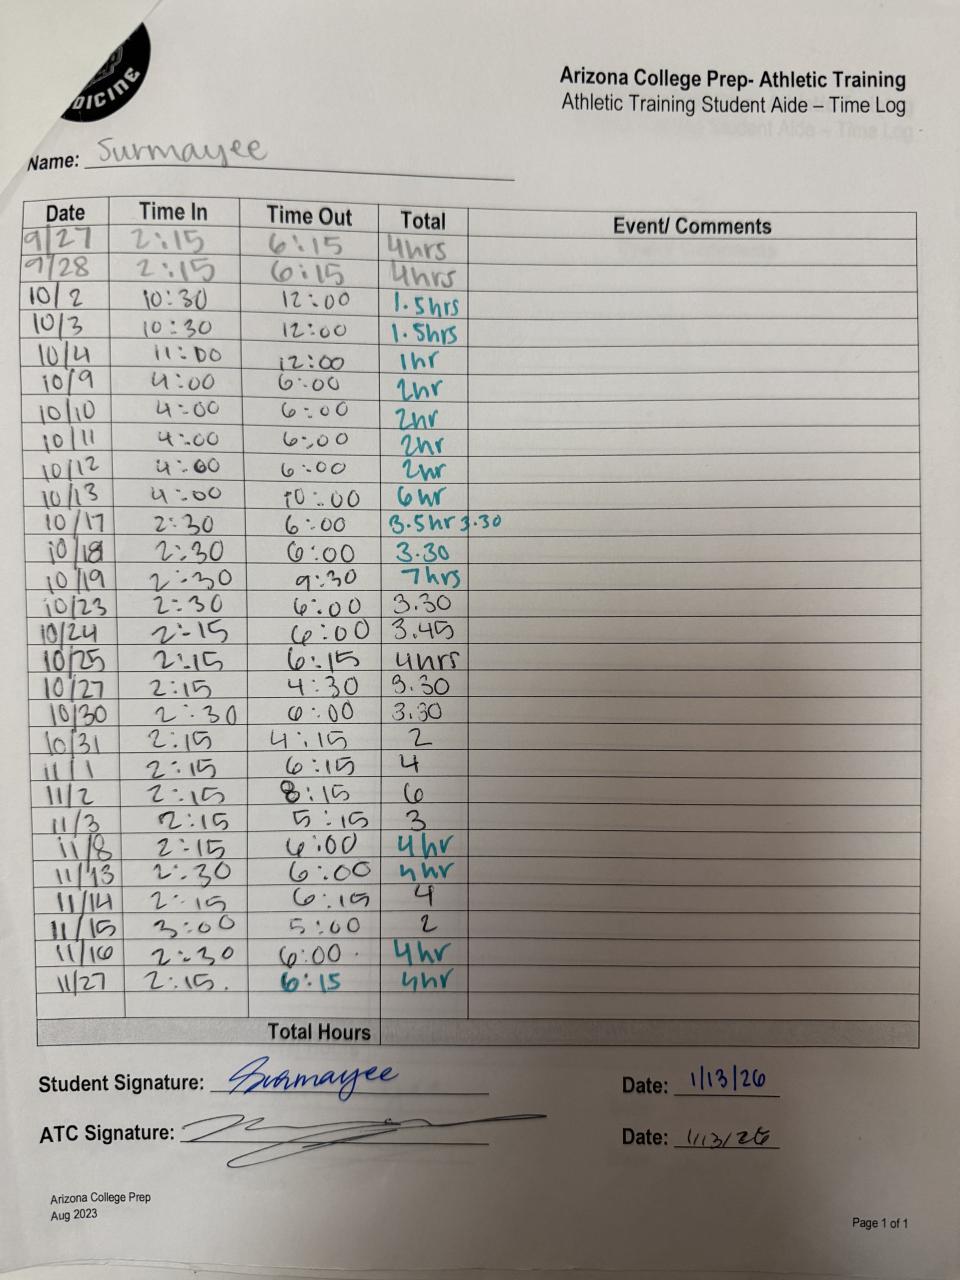 DICINE
Arizona College Prep- Athletic Training
Athletic Training Student Aide – Time Log
Name: Surmayee
Date Time In Time Out Total Event/ Comments
9/27 2:15 6:15 4hrs
9/28 2:15 6:15 4hrs
10/2 10:30 12:00 1.5hrs
10/3 10:30 12:00 1.5hrs
10/4 11:00 12:00 1hr
10/9 4:00 6:00 2hr
10/10 4:00 6:00 2hr
10/11 4:00 6:00 2hr
10/12 4:00 6:00 2hr
10/13 4:00 10:00 6hr
10/17 2:30 6:00 3.5hr 3.30
10/18 2:30 6:00 3.30
10/19 2:30 9:30 7hrs
10/23 2:30 6:00 3.30
10/24 2:15 6:00 3.45
10/25 2:15 6:15 4hrs
10/27 2:15 4:30 3.30
10/30 2:30 6:00 3.30
10/31 2:15 4:15 2
11/1 2:15 6:15 4
11/2 2:15 8:15 6
11/3 2:15 5:15 3
11/8 2:15 6:00 4hr
11/13 2:30 6:00 4hr
11/14 2:15 6:15 4
11/15 3:00 5:00 2
11/16 2:30 6:00 4hr
11/27 2:15 6:15 4hr
Total Hours
Student Signature: Surmayee Date: 1/13/26
ATC Signature: Date: 1/13/26
Arizona College Prep
Aug 2023
Page 1 of 1